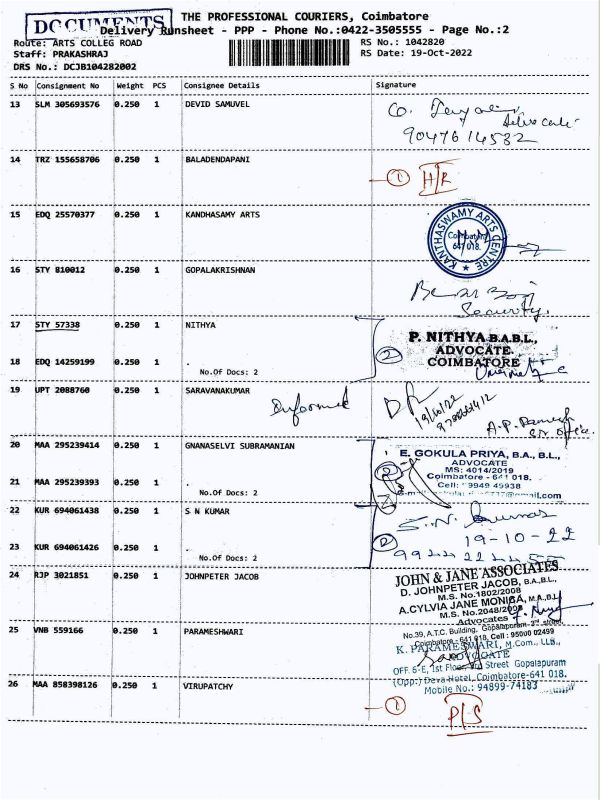 DOCUMENTS
THE PROFESSIONAL COURIERS, Coimbatore
Delivery Runsheet - PPP - Phone No.:0422-3505555 - Page No.:2
Route: ARTS COLLEG ROAD
RS No.: 1042820
Staff: PRAKASHRAJ
RS Date: 19-Oct-2022
DRS No.: DCJB104282002
S No Consignment No Weight PCS Consignee Details Signature
13 SLM 305693576 0.250 1 DEVID SAMUVEL
9047614532
14 TRZ 155658706 0.250 1 BALADENDAPANI
1 H/R
15 EDQ 25570377 0.250 1 KANDHASAMY ARTS
KANTHASWAMY ARTS CENTRE
Coimbatore
641 018.
16 STY 810012 0.250 1 GOPALAKRISHNAN
Security.
17 STY 57338 0.250 1 NITHYA
P. NITHYA B.A.B.L.,
ADVOCATE.
COIMBATORE
2
18 EDQ 14259199 0.250 1 .
No.Of Docs: 2
19 UPT 2088760 0.250 1 SARAVANAKUMAR
Informed
19/10/22
20 MAA 295239414 0.250 1 GNANASELVI SUBRAMANIAN
E. GOKULA PRIYA, B.A., B.L.,
ADVOCATE
MS: 4014/2019
Coimbatore - 641 018.
Cell: 9949 49938
21 MAA 295239393 0.250 1 .
No.Of Docs: 2
22 KUR 694061438 0.250 1 S N KUMAR
S.N. Kumar
19-10-22
2
23 KUR 694061426 0.250 1 .
No.Of Docs: 2
24 RJP 3021851 0.250 1 JOHNPETER JACOB
JOHN & JANE ASSOCIATES
D. JOHNPETER JACOB, B.A.,B.L.,
M.S. No.1802/2008
A.CYLVIA JANE MONICA, M.A.,B.L.
M.S. No.2048/2008
Advocates
No.39, A.T.C. Building, Gopalapuram 3rd street,
Coimbatore - 641 018, Cell : 95000 02499
25 VNB 559166 0.250 1 PARAMESHWARI
K. PARAMESWARI, M.Com., LLB.,
ADVOCATE
OFF. 6-E, 1st Floor, Street Gopalapuram
(Opp.) Deva Hotel, Coimbatore-641 018.
Mobile No.: 94899-74183
26 MAA 858398126 0.250 1 VIRUPATCHY
1 P/S